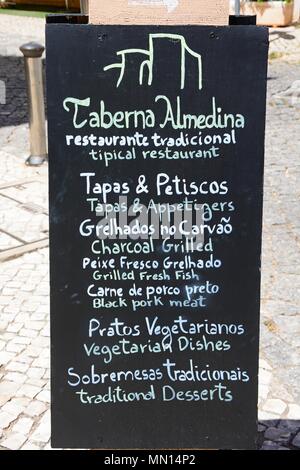 Taberna Almedina
restaurante tradicional
tipical restaurant
Tapas & Petiscos
Tapas & Appetigers
Grelhados no Carvão
Charcoal Grilled
Peixe Fresco Grelhado
Grilled Fresh Fish
Carne de porco preto
Black pork meat
Pratos Vegetarianos
Vegetarian Dishes
Sobremesas tradicionais
traditional Desserts
alamy stock photo
MN14P2
www.alamy.com